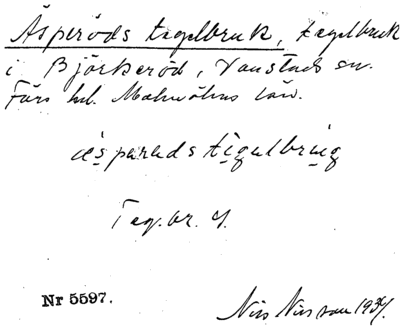 Äsperöds tegelbruk, tegelbruk
i Björkeröd, Vanstads sn.
Färs hd. Malmöhus län.
äsparøds tigəlbruig
Teg.br. 4.
Nr 5597.
Nils Nilsson 1934.